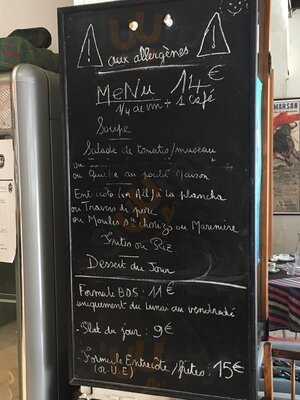 ! aux allergènes !
MeNu 14€
1/4 de vin + 1 Café
Soupe
Salade de tomates/museau
ou
ou Quiche au poulet Maison
Entrecote (en All) à la plancha
ou Travers de porc
ou Moules chorizo ou Marinière
Frites ou Riz
Dessert du Jour
Formule B.D.S : 11€
uniquement du lundi au vendredi
Plat du jour : 9€
Formule Entrecôte/frites : 15€
(or U.E)
MARSON